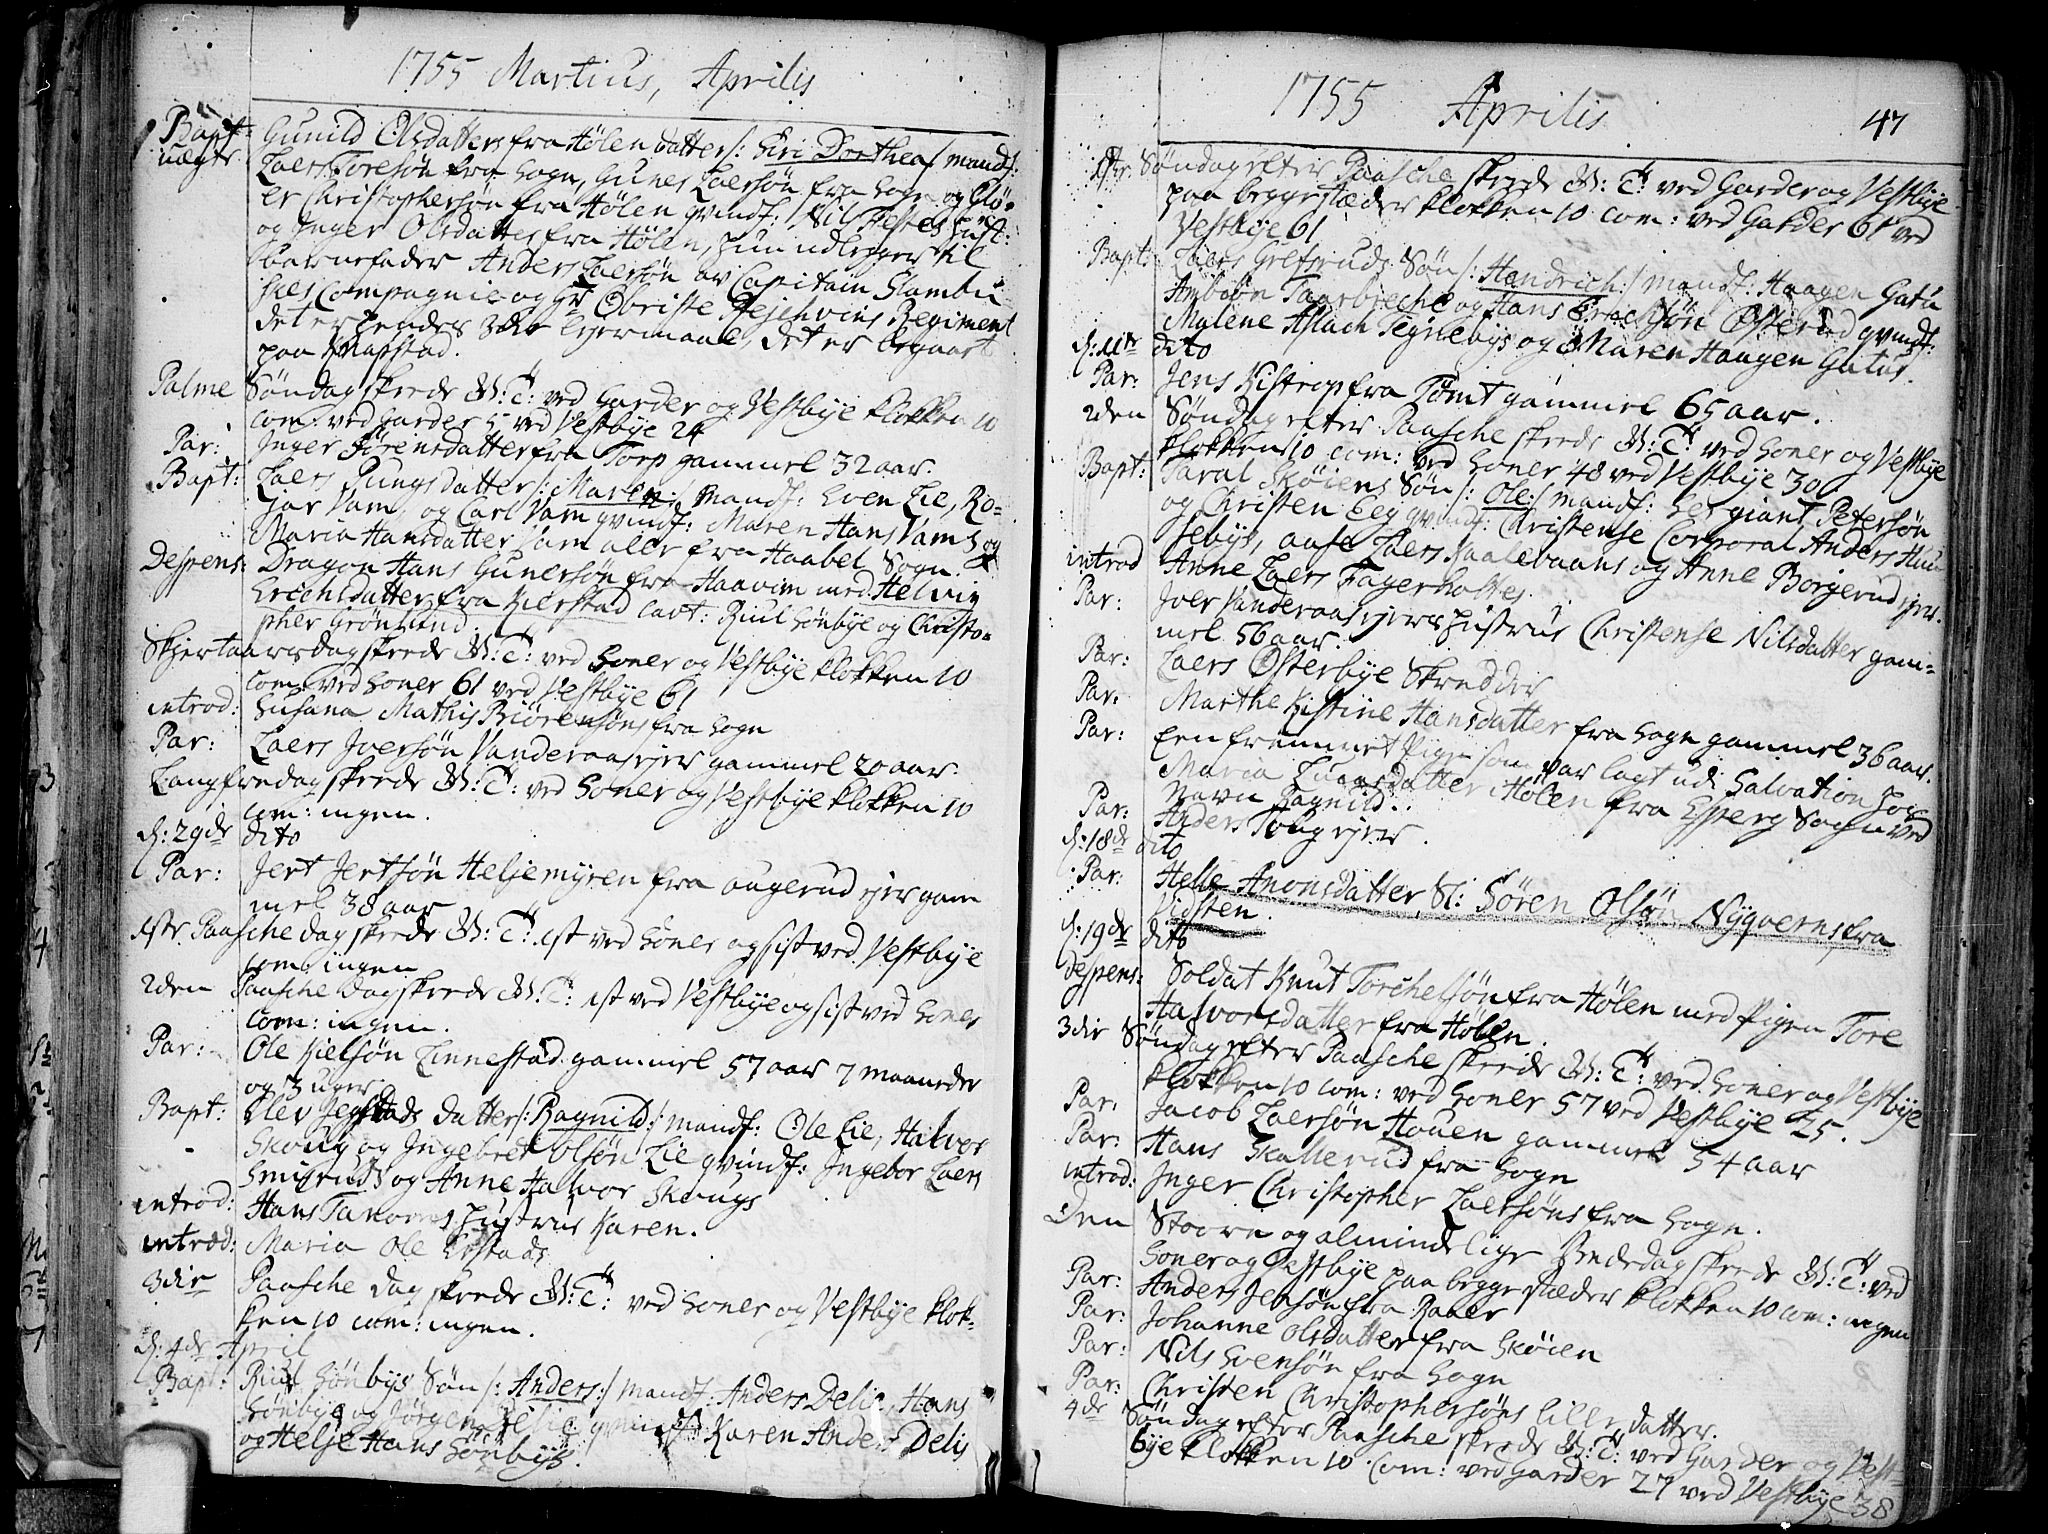 1755 Martius, Aprilis
Bapt: Gunild Olsdatters fra Hølen datter /: Siri Dorthea :/ mandf:
uægte Laers Toresøn fra Sogn, Gunes Laersøn fra Sogn og Elø-
er Christophersøn fra Hølen qvindf: Nils Festes Hust:
og Inger Olsdatter fra Hølen, hun udlegger til
barnefader Anders Laersøn av Capitain Stambu
sies Compagnie og Hr Obriste Regiment
det er hendes 3die lejermaal, det er begaaet
paa Mapstad.
Palme Søndag skrede G: T: ved Garder og Vestbye klokken 10
com: ved Garder 5 ved Vestbye 24
Par: Inger Sørensdatter fra Torp gammel 32 aar.
Bapt: Laers Pungs datter /: Maren :/ mandf: Even Lie, Ro-
jar Vam, og Carl Vam qvindf: Maren Hans Vams og
Maria Hansdatter sam alle fra Haabel Sogn.
Despens: Dragon Hans Gunersøn fra Haavim med Helvig
Erichsdatter fra Kierstad Cavt: Riul Sønbye og Christo-
pher Grønlund.
Skjertaarsdag skrede G: T: ved Soner og Vestbye klokken 10
com: ved Soner 61 ved Vestbye 61
introd: Susana Mathis Biørensøns fra Sogn
Par: Laers Joersøn Vanderaasejer gammel 20 aar.
Langfredag skrede G: T: ved Soner og Vestbye klokken 10
com: ingen.
d: 29de dito
Par: Jert Jertsøn Heljemyren fra augerud ejer gam
mel 38 aar
1ste Paasche dag skrede G: T: 1st ved Soner og sist ved Vestbye
com: ingen
2den Paasche Dag skrede G: T: 1st ved Vestbye og sist ved Soner
Com: ingen.
Par: Ole Kielsøn Linnestad gammel 57 aar 7 maaneder
og 3 uger
Bapt: Elev Jegstads datter /: Ragnild :/ mandf: Ole Lie, Halvor
Skoug og Ingebret Olsøn Lie qvindf: Ingebor Laers
Smisruds og Anne Halvor Skougs
introd: Hans Tanoms Hustrue Karen.
introd: Maria Ole Kistads
3die Paasche dag skrede G: T: ved Soner og Vestbye klok-
ken 10 com: ingen.
d: 4de April
Bapt: Riul Sønbys Søn /: Anders :/ mandf: Anders Delie, Hans
Sønbye og Jørgen qvindf: Karen Anders Delis
og Helje Hans Sønbys.
1755 Aprilis
47
1ste Søndag efter Paasche skrede G: T: ved Garder og Vestbye
paa begge stæder klokken 10 com: ved Garder 61 ved
Vestbye 61
Bapt: Laers Grefsruds Søn /: Handrich :/ mandf: Haagen Gatu
Ambiøn Taarbreche og Hans Erichsøn Østerud qvindf:
Malene Aslach Tegnebys og Maren Haagen Gatus.
d: 11te dito
Par: Jens Kistrop fra Tømt gammel 65 aar.
2den Søndag efter Paasche skrede G: T: ved Soner og Vestbye
klokken 10 com: ved Soner 48 ved Vestbye 30
Bapt: Taral Skøiens Søn /: Ole :/ mandf: Sergiant Petersøn
og Christen Eeg qvindf: Christense Corporal Anders Huu
sebys, aase Laers Kaalebaans og Anne Borgerud ejer.
introd Anne Laers Fagerholtes
Par: Joer Vanderaasejers Hustrue Christense Nilsdatter gam-
mel 56 aar.
Par: Laers Østerbye Skredder
Par: Marthe Kistine Hansdatter fra Sogn gammel 36 aar.
Par: Een fremmet Pige som var lagt udi Salvation hos
Maria datter i Hølen fra Esperg Sogn ved
Navn Ragnild.
Par: Anders Toug ejer.
d: 18de dito
Par: Helle Anonsdatter Sl: Søren Olsøn Nyqverns fra
Vidsten.
d: 19de dito
despens: Soldat Knut Torchelsøn fra Hølen med Pigen Tore
Halvorsdatter fra Hølen.
3die Søndag efter Paasche skrede G: T: ved Soner og Vestbye
klokken 10 com: ved Soner 57 ved Vestbye 25.
Par: Jacob Laersøn Houen gammel 54 aar
Par: Hans Skallerud fra Sogn
introd: Inger Christopher Laersøns fra Sogn.
Den Stoore og almindelige Bededag skrede G: T: ved
Soner og Vestbye paa begge stæder klokken 10 com: ingen
Par: Anders Jensøn fra Raaer
Par: Johanne Olsdatter fra Skøien
Par: Nils Svensøn fra Sogn
Par: Christen Christophersøns lille datter.
4de Søndag efter Paasche skrede G: T: ved Garder og Vest-
bye klokken 10 Com: ved Garder 27 ved Vestbye 38